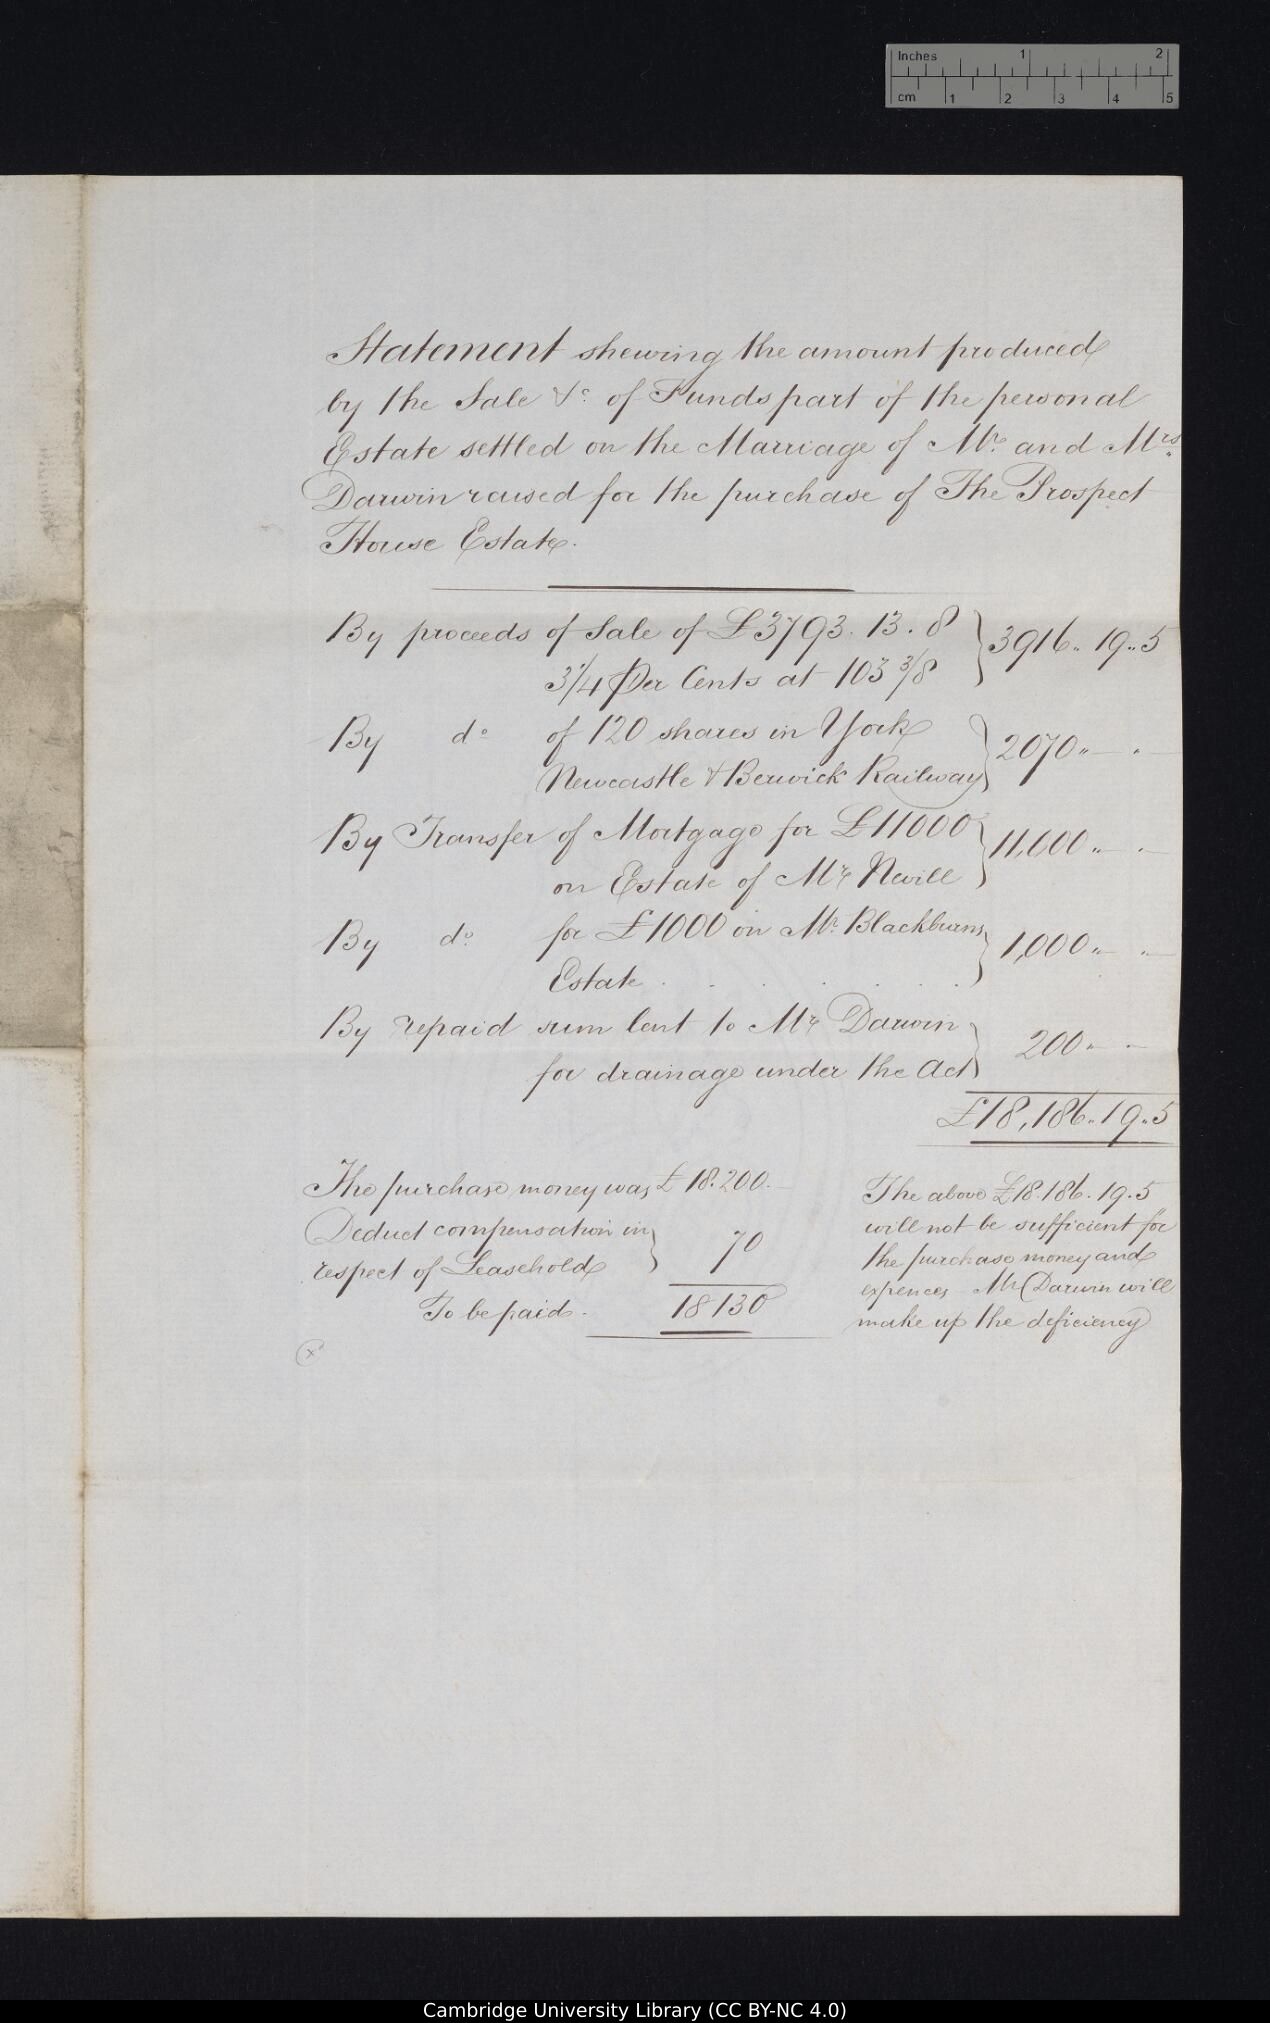 Inches 1 2
cm 1 2 3 4 5
Statement shewing the amount produced
by the Sale &c. of Funds part of the personal
Estate settled on the Marriage of Mr. and Mrs.
Darwin raised for the purchase of The Prospect
House Estate.
By proceeds of Sale of £3793. 13. 8
3 1/4 Per Cents at 103 3/8 } 3916 " 19 " 5
By do of 120 shares in York
Newcastle & Berwick Railway } 2070 " — " —
By Transfer of Mortgage for £11000
on Estate of Mr. Nevill } 11,000 " — " —
By do. for £1000 on Mr. Blackburns
Estate . . . . . . . } 1,000 " — " —
By repaid sum lent to Mr. Darwin
for drainage under the Act } 200 " — " —
£18,186 " 19 " 5
The purchase money was £18.200. —
Deduct compensation in
respect of Leasehold } 70
To be paid. 18130
The above £18.186. 19. 5
will not be sufficient for
the purchase money and
expences Mr Darwin will
make up the deficiency
x
Cambridge University Library (CC BY-NC 4.0)